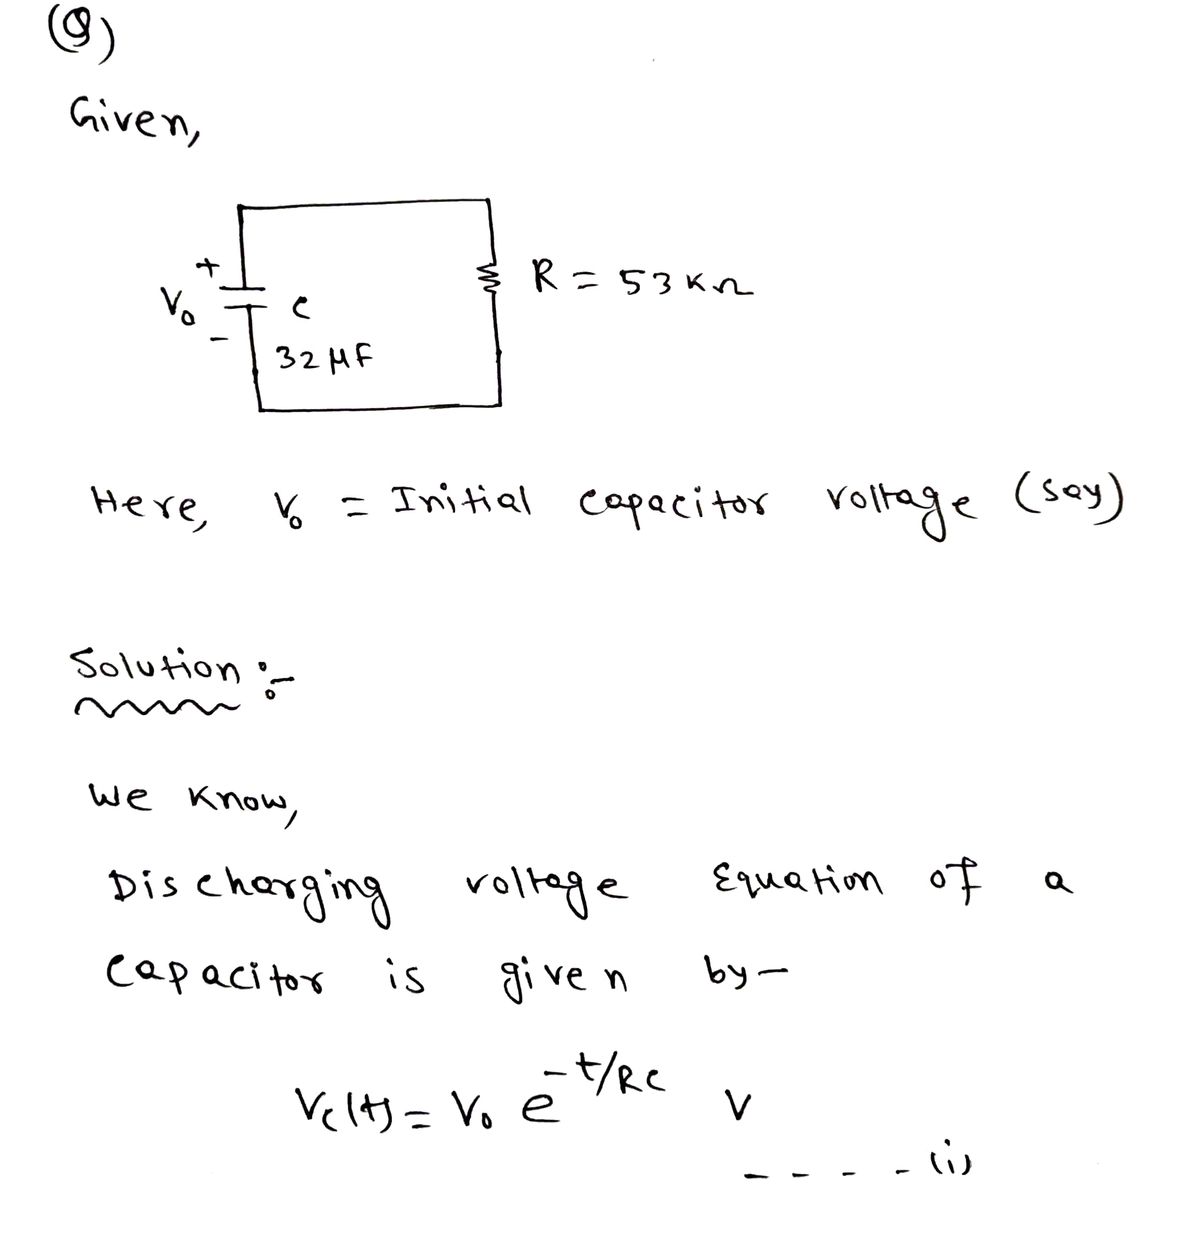 (Q)
Given,
+
V₀
-
C
32 μF
R = 53 KΩ
Here, V₀ = Initial capacitor voltage (say)
Solution :-
We Know,
Discharging voltage Equation of a
Capacitor is given by-
Vc(t) = V₀ e^-t/RC V
- - - - (i)